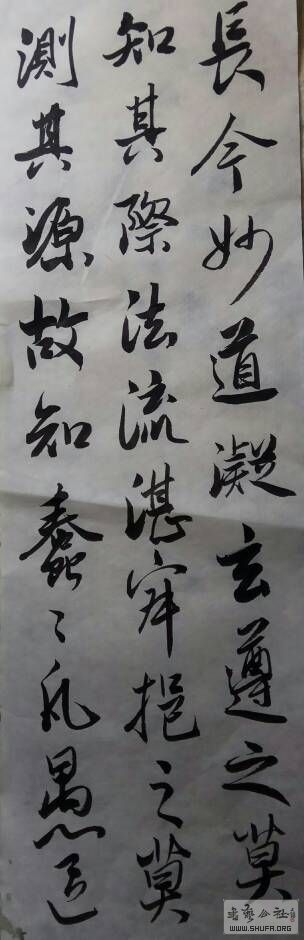 長今妙道凝玄遵之莫
知其際法流湛寂挹之莫
測其源故知蠢〻凡愚區
書藝公社
WWW.SHUFA.ORG